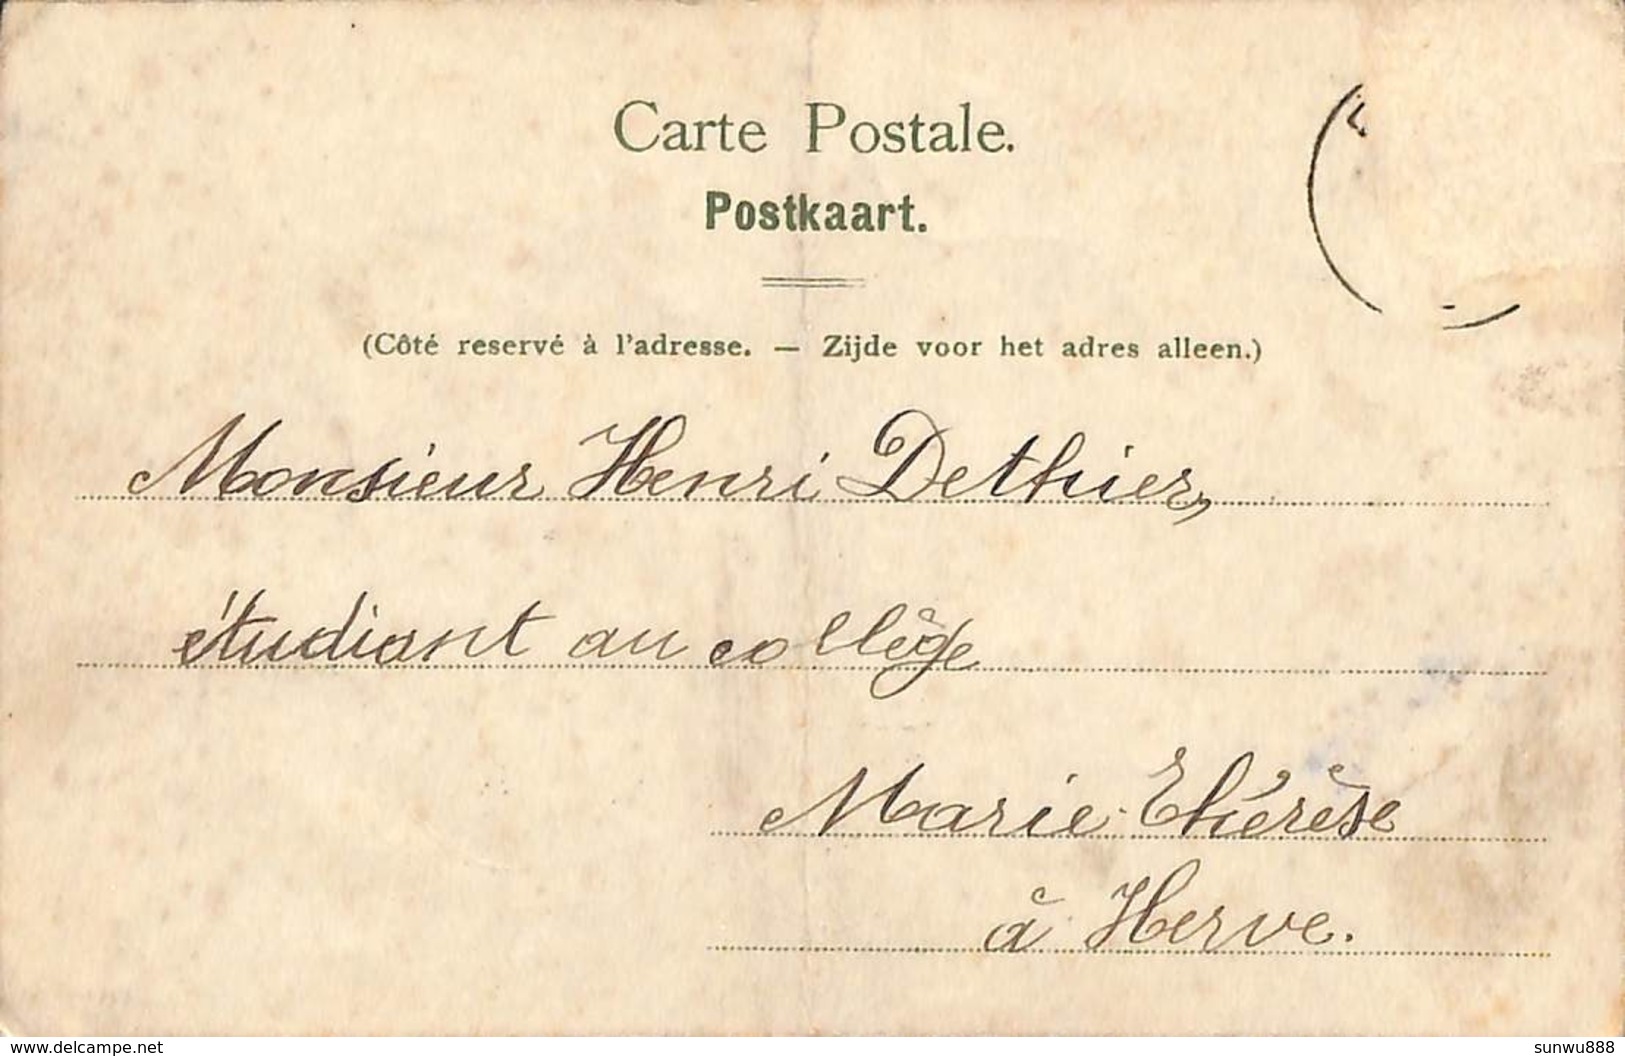 Carte Postale.
Postkaart.
(Côté reservé à l'adresse. — Zijde voor het adres alleen.)
Monsieur Henri Dethier,
étudiant au collège
Marie-Thérèse
à Herve.
www.delcampe.net
sunwu888